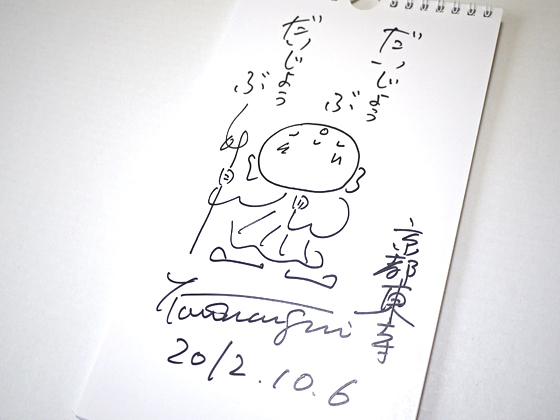 だいじょう
ぶ
だいじょう
ぶ
京都東寺
2012.10.6